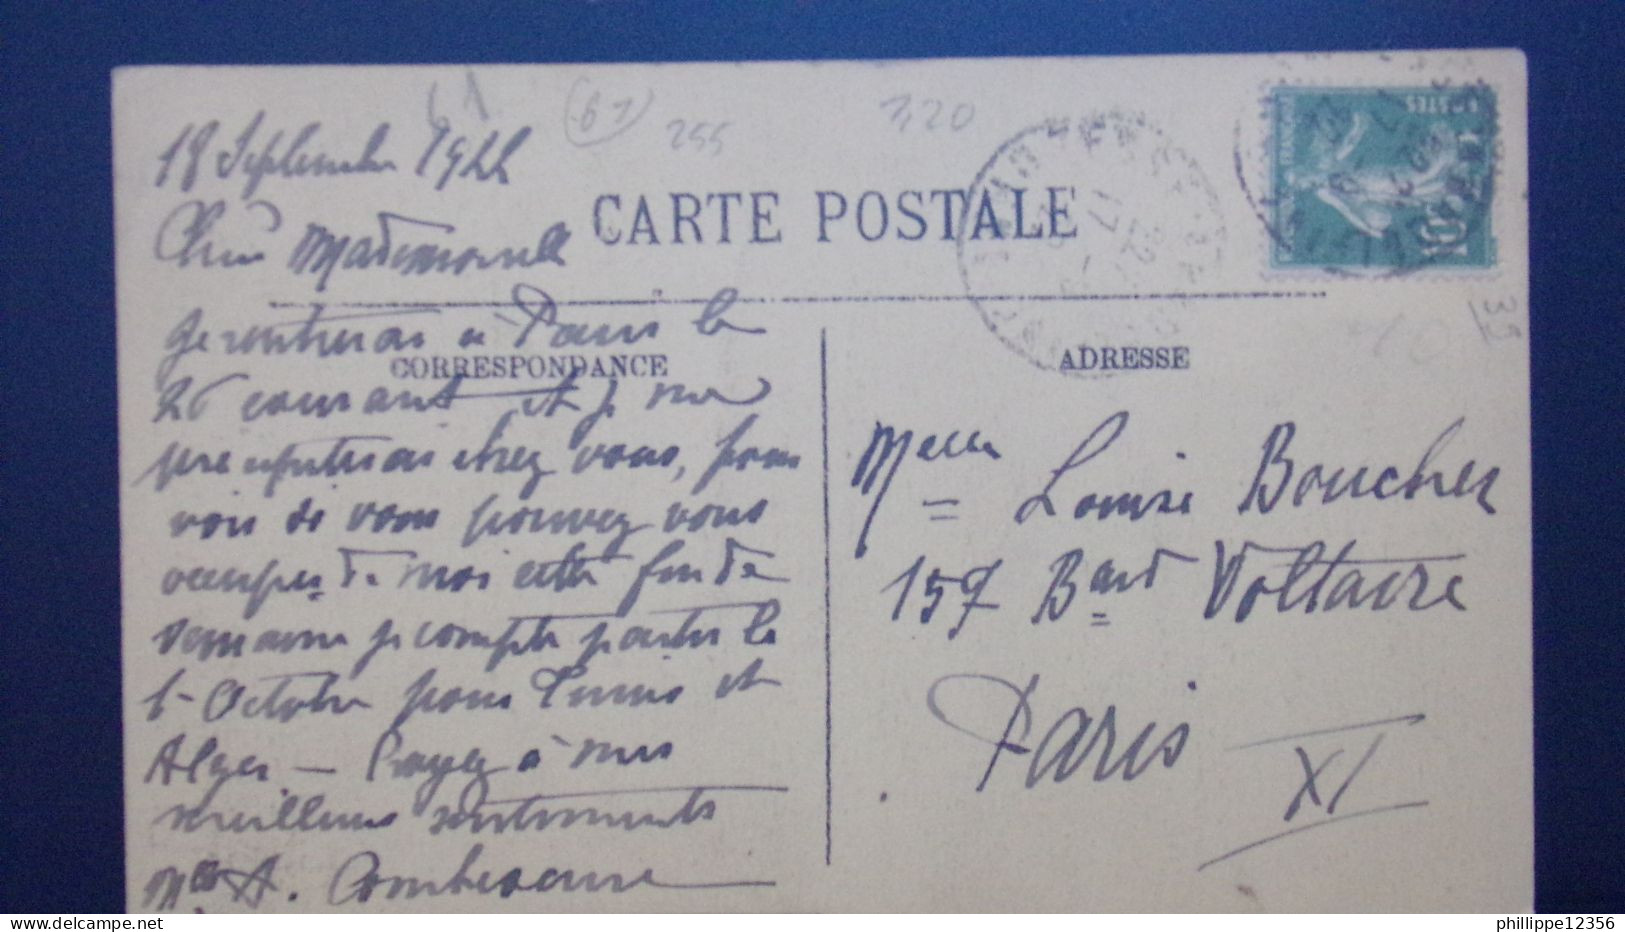 61
61
255
320
18 Septembre 1922
CARTE POSTALE
10
Chère Mademoiselle
Je rentrerai à Paris le
CORRESPONDANCE
26 courant et je me
présenterai chez vous, pour
voir si vous pouvez vous
occuper de moi cette fin de
semaine je compte partir le
1er Octobre pour Tunis et
Alger — Croyez à mes
meilleurs sentiments
A.
ADRESSE
35
Louise Boucher
157 Bard Voltaire
Paris XI
phillippe12356